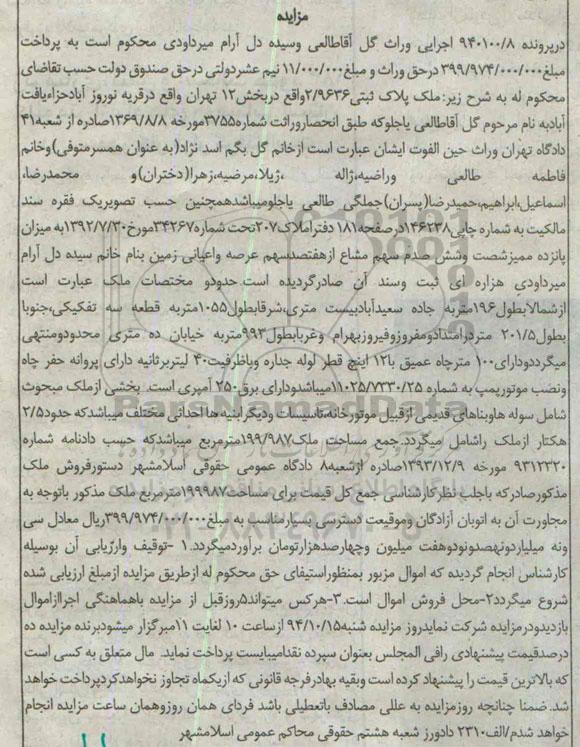 مزایده
درپرونده ۹۴۰۱۰۰/۸ اجرایی وراث گل آقاطالعی وسیده دل آرام میرداودی محکوم است به پرداخت
مبلغ۳۹۹/۹۷۴/۰۰۰/۰۰۰ درحق وراث و مبلغ۱۱/۰۰۰/۰۰۰ نیم عشردولتی درحق صندوق دولت حسب تقاضای
محکوم له به شرح زیر:ملک پلاک ثبتی۲/۹۶۳۶واقع دربخش۱۲ تهران واقع درقریه نوروز آبادحزاءیافت
آبادبه نام مرحوم گل آقاطالعی یاجلوکه طبق انحصاروراثت شماره۳۷۵۵مورخه ۱۳۶۹/۸/۸صادره از شعبه۴۱
دادگاه تهران وراث حین الفوت ایشان عبارت است ازخانم گل بگم اسد نژاد(به عنوان همسرمتوفی)وخانم
فاطمه طالعی وراضیه،ژاله ،ژیلا،مرضیه،زهرا(دختران)و محمدرضا،
اسماعیل،ابراهیم،حمیدرضا(پسران)جملگی طالعی یاجلومیباشدهمچنین حسب تصویریک فقره سند
مالکیت به شماره چاپی۱۴۶۲۳۸درصفحه۱۸۱ دفتراملاک۲۰۷تحت شماره۳۴۲۶۷مورخ۱۳۹۲/۷/۳۰به میزان
پانزده ممیزشصت وشش صدم سهم مشاع ازهفتصدسهم عرصه واعیانی زمین بنام خانم سیده دل آرام
میرداودی هزاره ای ثبت وسند آن صادرگردیده است.حدودو مختصات ملک عبارت است
ازشمالابطول۱۹۶متربه جاده سعیدآبادبیست متری،شرقابطول۱۰۵۵متربه قطعه سه تفکیکی،جنوبا
بطول۲۰۱/۵ متردرامتدادومفروزوفیروزبهرام وغربابطول۹۹۳متربه خیابان ده متری محدودومنتهی
میگرددودارای۱۰۰ مترچاه عمیق با۱۲ اینچ قطر لوله جداره وباظرفیت۴۰ لیتربرثانیه دارای پروانه حفر چاه
ونصب موتورپمپ به شماره ۱۱۰۲۵/۷۳۳۰/۲۵میباشدودارای برق۲۵۰ آمپری است. بخشی ازملک مبحوث
شامل سوله هاوبناهای قدیمی ازقبیل موتورخانه،تاسیسات ودیگرابنیه ها احداثی مختلف میباشدکه حدود۲/۵
هکتار ازملک راشامل میگردد.جمع مساحت ملک۱۹۹/۹۸۷مترمربع میباشدکه حسب دادنامه شماره
۹۳۱۲۳۲۰ مورخه ۱۳۹۳/۱۲/۹صادره ازشعبه۸ دادگاه عمومی حقوقی اسلامشهر دستورفروش ملک
مذکورصادرکه باجلب نظرکارشناسی جمع کل قیمت برای مساحت۱۹۹۹۸۷مترمربع ملک مذکور باتوجه به
مجاورت آن به اتوبان آزادگان وموقعیت دسترسی بسیارمناسب به مبلغ۳۹۹/۹۷۴/۰۰۰/۰۰۰ریال معادل سی
ونه میلیاردونهصدونودوهفت میلیون وچهارصدهزارتومان برآوردمیگردد.۱ -توقیف وارزیابی آن بوسیله
کارشناس انجام گردیده که اموال مزبور بمنظوراستیفای حق محکوم له ازطریق مزایده ازمبلغ ارزیابی شده
شروع میگردد۲-محل فروش اموال است.۳-هرکس میتواند۵روزقبل از مزایده باهماهنگی اجراازاموال
بازدیدودرمزایده شرکت نمایدروز مزایده شنبه۹۴/۱۰/۱۵ ازساعت ۱۰ لغایت ۱۱مبرگزار میشودبرنده مزایده ده
درصدقیمت پیشنهادی رافی المجلس بعنوان سپرده نقدامیبایست پرداخت نماید. مال متعلق به کسی است
که بالاترین قیمت را پیشنهاد کرده است وبقیه بهادرفرجه قانونی که ازیکماه تجاوز نخواهدکردپرداخت خواهد
شد. ضمنا چنانچه روزمزایده به عللی مصادف باتعطیلی باشد فردای همان روزوهمان ساعت مزایده انجام
خواهد شد.م/الف۲۳۱۰ دادورز شعبه هشتم حقوقی محاکم عمومی اسلامشهر
ParsNamadData